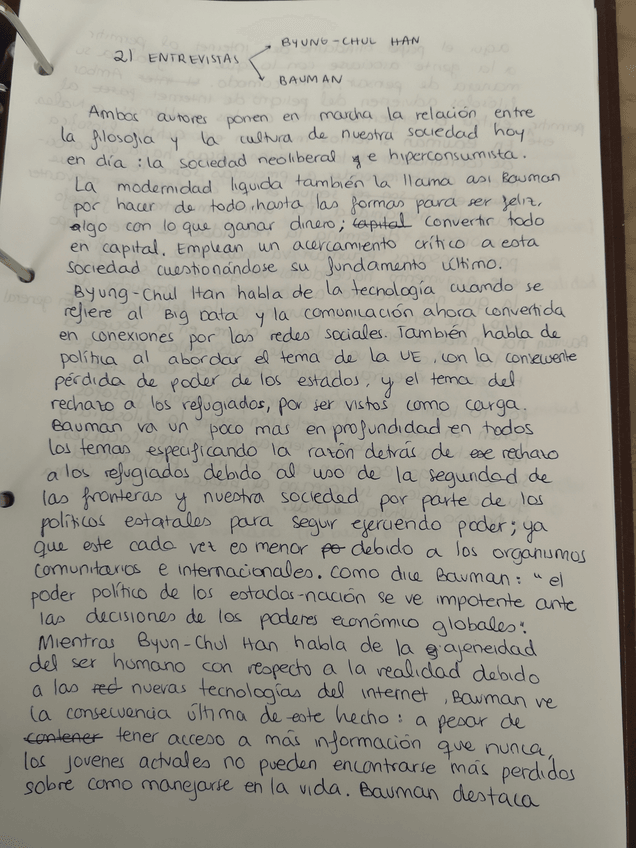 2) ENTREVISTAS
BYUNG-CHUL HAN
BAUMAN
Ambos autores ponen en marcha la relación entre
la filosofía y la cultura de nuestra sociedad hoy
en día: la sociedad neoliberal e hiperconsumista.
La modernidad líquida también la llama asi Bauman
por hacer de todo, hasta las formas para ser feliz,
algo con lo que ganar dinero; capital convertir todo
en capital. Emplean un acercamiento crítico a esta
sociedad cuestionándose su fundamento último.
Byung-Chul Han habla de la tecnología cuando se
refiere al Big Data y la comunicación ahora convertida
en conexiones por las redes sociales. También habla de
política al abordar el tema de la UE, con la consecuente
pérdida de poder de los estados, y el tema del
rechazo a los refugiados, por ser vistos como carga.
Bauman va un poco mas en profundidad en todos
los temas especificando la razón detrás de ese rechazo
a los refugiados debido al uso de la seguridad de
las fronteras y nuestra sociedad por parte de los
políticos estatales para seguir ejerciendo poder; ya
que este cada vez es menor po debido a los organismos
comunitarios e internacionales. Como dice Bauman: "el
poder político de los estados-nación se ve impotente ante
las decisiones de los poderes económico globales".
Mientras Byun-Chul Han habla de la ajeneidad
del ser humano con respecto a la realidad debido
a las red nuevas tecnologías del internet, Bauman ve
la consecuencia última de este hecho: a pesar de
contener tener acceso a más información que nunca,
los jovenes actuales no pueden encontrarse más perdidos
sobre como manejarse en la vida. Bauman destaca